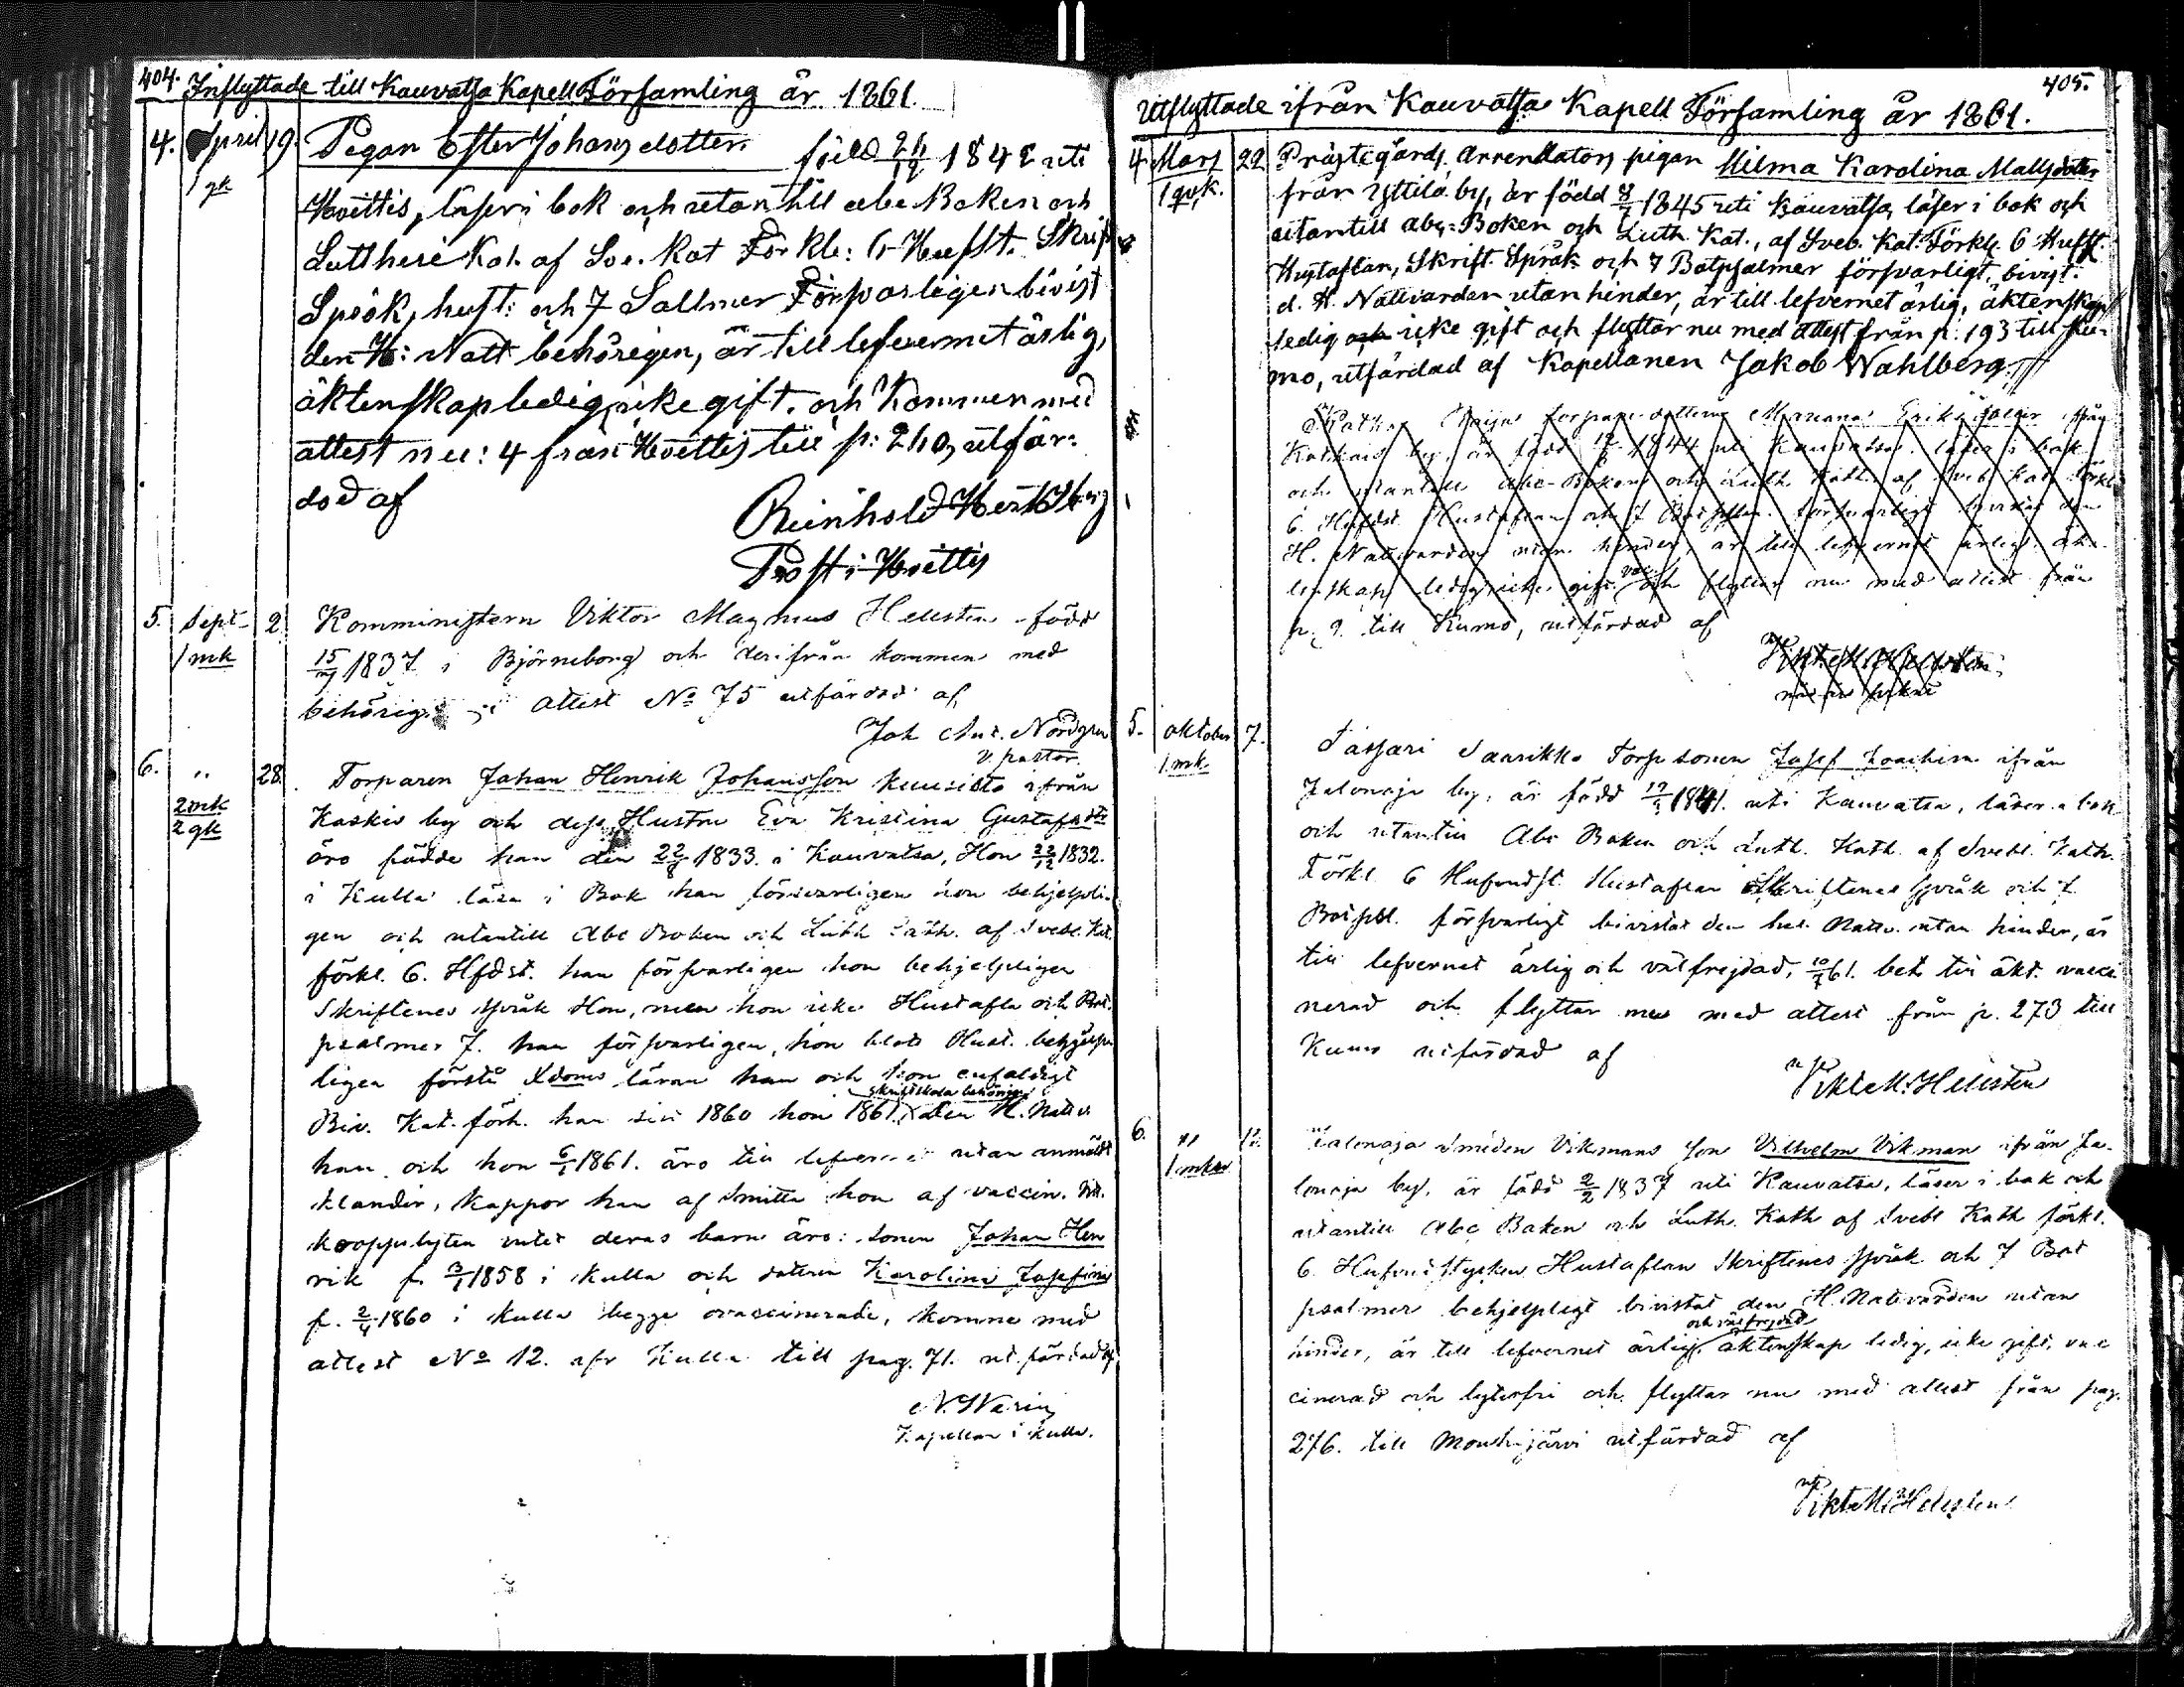 404.
Inflyttade till Kauvatsa Kapell Församling år 1861.
4. April 19. Pigan Ester Johansdotter född 1842 uti
1 qk
Hvittis, läser i bok och utantill abe Boken och
Luttheri Kat. af Sve. Kat Förkla: 6 Hufst. Skrif
Språk, hust: och 7 Sallmer Försvarligen bivist
den H: Natt behörigen, är till lefvernet ärlig,
äktenskap ledig, icke gift. och kommer med
attest nu: 4 från Hvittis till p: 240, utfär-
dad af
Reinhold Hertzberg
Prost i Hvittis
5. Sept 2. Komministern Viktor Magnus Helesten född
1 mk
15 1837 i Björneborg och derifrån kommen med
behörig attest No 75 utfärdad af
Joh Ant. Nordgren
v. pastor.
6. " 28. Torparen Johan Henrik Johansson Kuusisto ifrån
2 mk
2 qk
Kaskis by och dess Hustru Eva Kristina Gustafsdtr
äro födde han den 22/8 1833. i Kauvatsa, Hon 22/12 1832.
i Kulla läsa i Bok han försvarligen hon behjelpli-
gen och utantill Abc Boken och Luth Kath. af Svebl. Kat.
förkl. 6. Hfdst. han försvarligen hon behjelpligen
Skriftenes språk Hon, men hon icke Hustafla och Bot.
psalmer 7. han försvarligen, hon blott Hust. behjelp
ligen förstå Xdoms läran han och hon enfaldigt
skriftskola behörigen
Biv. Kat. förh. han sist 1860 hon 1861. den H. Nattv.
han och hon 6/1 1861. äro till lefvernet utan anmäldt
klander, koppor han af smitta hon af vaccin. Nat.
kopplyten intet deras barn äro: sonen Johan Hen
rik f. 3/1 1858 i Kulla och dottren Karolina Josefina
f. 2/4 1860 i Kulla begge ovaccinerade, komne med
attest No 12. ifr Kulla till pag. 71. utfärdad af
N. Warin
Kapellan i Kulla.
405.
Utflyttade ifrån Kauvatsa Kapell Församling år 1861.
4. Mars 22. Prästegårds Arrendators pigan Milma Karolina Matsdotter
1 qvk.
från Yttilä by, är född 1845 uti Kauvatsa, läser i bok och
utantill abc-Boken och Luth. Kat., af Sveb. Kat. Förkl. 6 Hufst.
Hustaflan, Skrift. Språk och 7 Botpsalmer försvarligt, bivist.
d. H. Nattvarden utan hinder, är till lefvernet ärlig, äktenskaps
ledig och icke gift och flyttar nu med attest från p. 193 till Ku-
mo, utfärdad af Kapellanen Jakob Wahlberg.
torpare dottren Mariana Eriks
by, är född 1844 uti Kauvatsa, läser i bok
och utantill Abc-Boken och Luth. Kath. af Sveb. Kat. Förkl.
6. Hufdst. Hustaflan och 7 försvarligt bivistat den
H. Nattvarden utan hinder, är till lefvernet ärlig, äk-
tenskap ledig, icke gift och flyttar nu med attest från
p. 9. till Kumo, utfärdad af
5. oktober 7. Torp sonen Josef Joachim ifrån
1 mk.
Jalonoja by, är född 1841. uti Kauvatsa, läser i bok
och utantill Abc Boken och Luth. Kath. af Svebl. Kath.
Förkl. 6 Hufvudst. Hustaflan Skriftenes språk och 7
Botpsl. försvarligt bivistat den hel. Nattv. utan hinder, är
till lefvernet ärlig och välfrejdad, 61. bet. till äkt. vacci
nerad och flyttar nu med attest från p. 273 till
Kumo utfärdad af
Vikt. M. Helesten
6. " 12. Jalonoja Smeden Vikmans Son Vilhelm Vikman ifrån Ja-
1 mk
lonoja by, är född 2/2 1837 uti Kauvatsa, läser i bok och
utantill Abc Boken och Luth. Kath af Svebl Kath förkl.
6. Hufvudstycken Hustaflan Skriftenes språk och 7 Bot
psalmer behjelpligt bivistat den H. Nattvarden utan
och välfrejdad
hinder, är till lefvernet ärlig äktenskap ledig, icke gift, vac
cinerad och lytesfri och flyttar nu med attest från pag.
276. till Mouhijärvi utfärdad af
Vikt M. Helesten